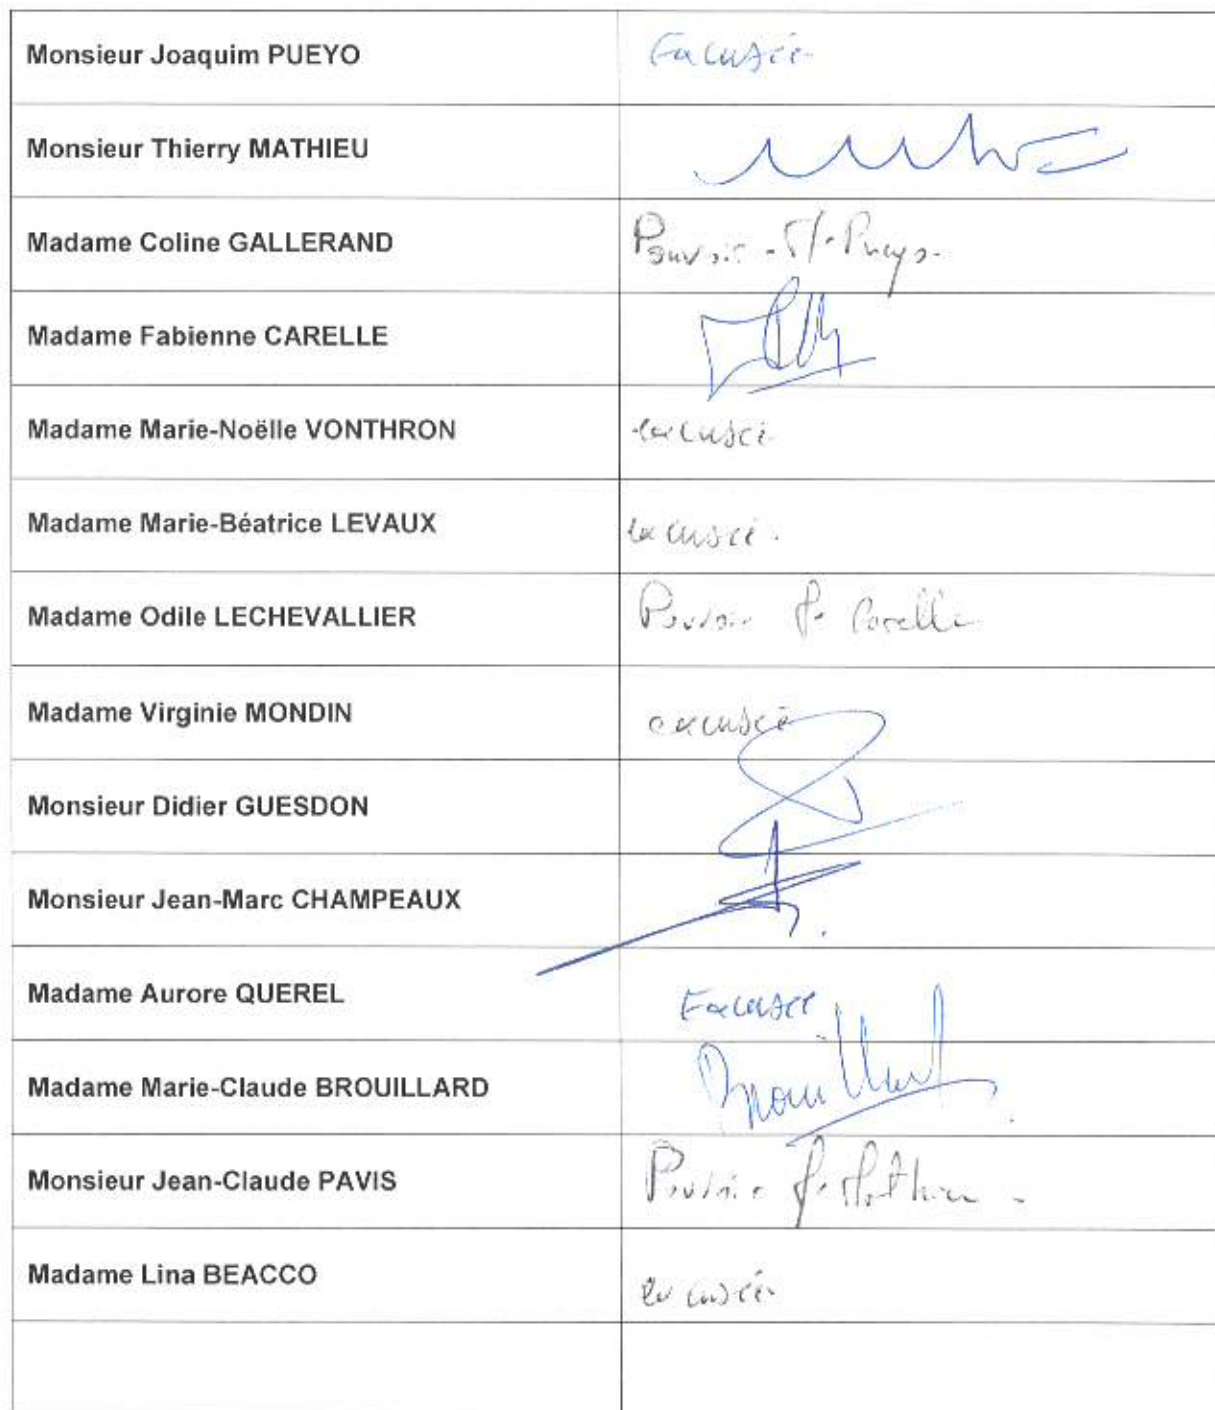 Monsieur Joaquim PUEYO Excusée
Monsieur Thierry MATHIEU
Madame Coline GALLERAND Pouvoir Pueyo
Madame Fabienne CARELLE
Madame Marie-Noëlle VONTHRON excusée
Madame Marie-Béatrice LEVAUX excusée.
Madame Odile LECHEVALLIER Pouvoir Carelle
Madame Virginie MONDIN excusée
Monsieur Didier GUESDON
Monsieur Jean-Marc CHAMPEAUX
Madame Aurore QUEREL Excusée
Madame Marie-Claude BROUILLARD Brouillard
Monsieur Jean-Claude PAVIS Pouvoir Mathieu
Madame Lina BEACCO excusée